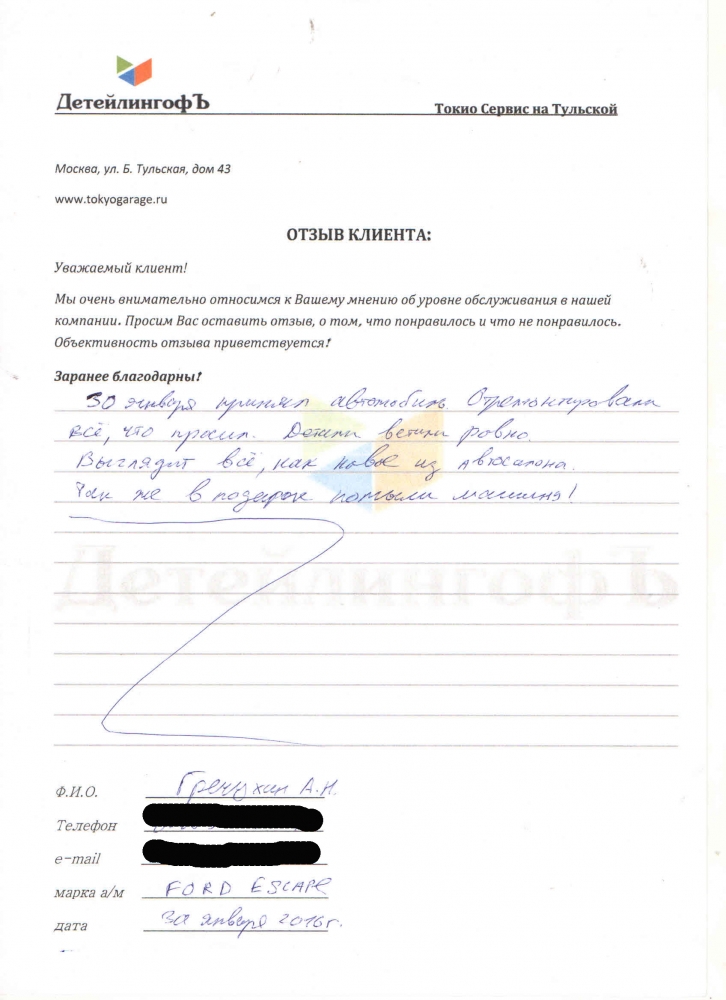 ДетейлингофЪ
Токио Сервис на Тульской
Москва, ул. Б. Тульская, дом 43
www.tokyogarage.ru
ОТЗЫВ КЛИЕНТА:
Уважаемый клиент!
Мы очень внимательно относимся к Вашему мнению об уровне обслуживания в нашей
компании. Просим Вас оставить отзыв, о том, что понравилось и что не понравилось.
Объективность отзыва приветствуется!
Заранее благодарны!
30 января принял автомобиль. Отремонтировали
всё, что просил. Детали встали ровно.
Выглядит всё, как новое из автосалона.
Так же в подарок помыли машину!
ДетейлингофЪ
Ф.И.О. Гречухин А.Н.
Телефон
e-mail
марка а/м FORD ESCAPE
дата 30 января 2016 г.